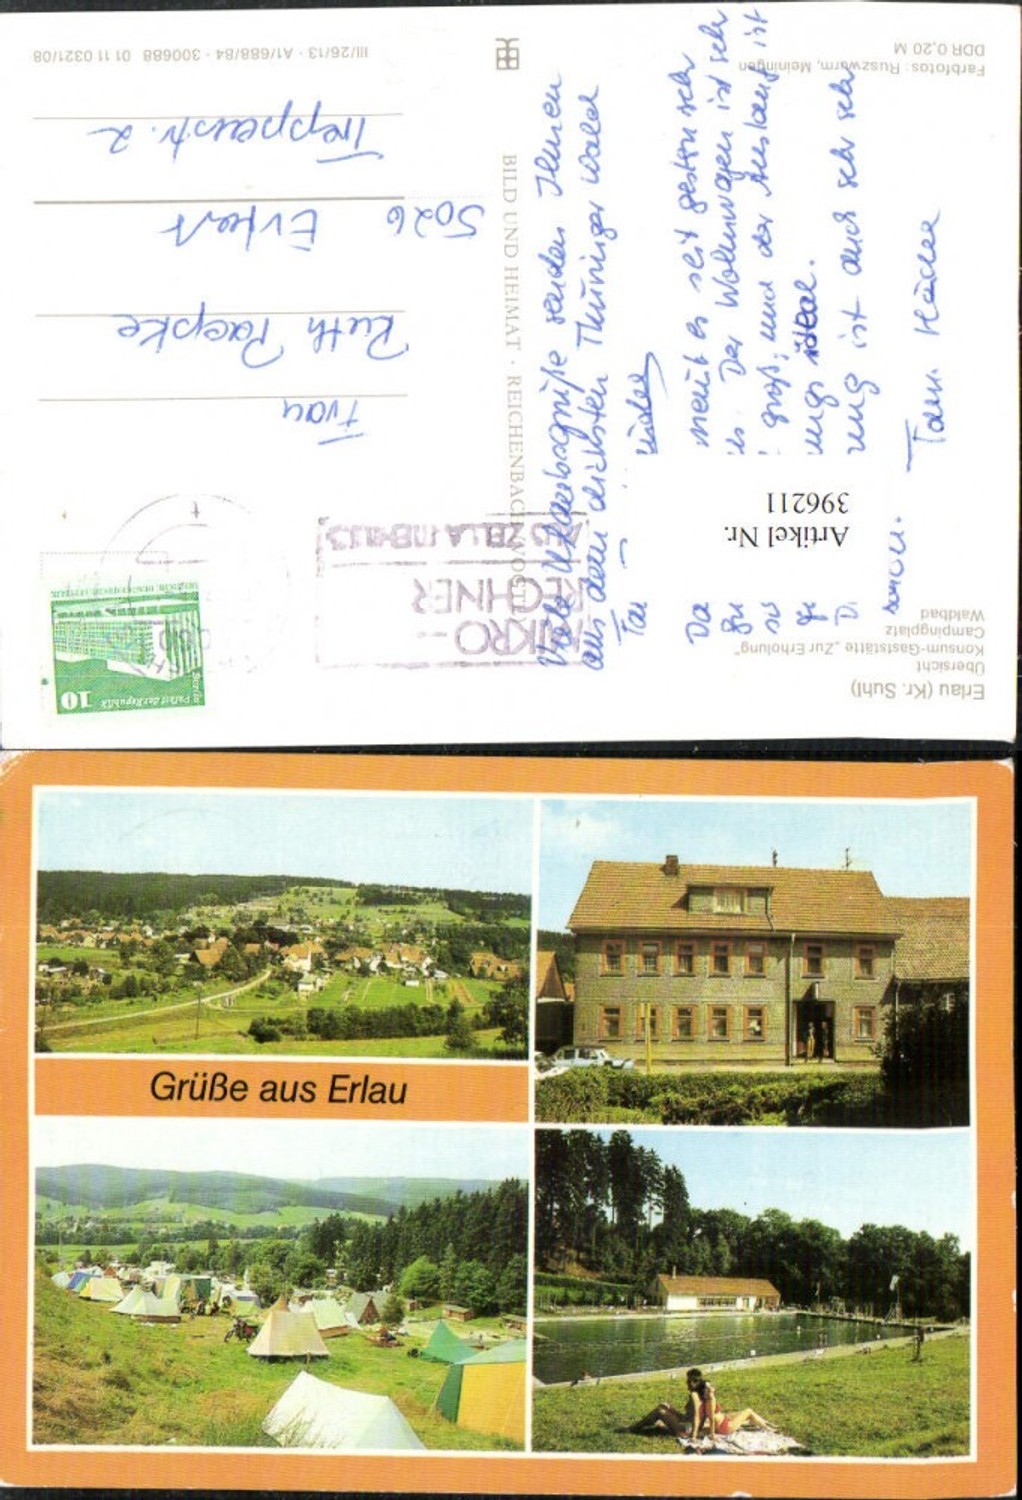 Erlau (Kr. Suhl)
Übersicht
Konsum-Gaststätte „Zur Erholung"
Campingplatz
Waldbad
Artikel Nr.
396211
Farbfotos: Ruszwurm, Meiningen
DDR 0,20 M
BILD UND HEIMAT · REICHENBACH
III/26/13 · A1/688/84 · 300688 01 11 0321/08
Viele Urlaubsgrüße senden Ihnen
aus dem dichten Thüringer Wald
Fam.
Da
meint es seit gestern sehr
Der Wohnwagen ist sehr
groß, und der Auslauf ist
ideal.
ist auch sehr sehr
Fam.
MIKRO-
RECHNER
AUS ZELLA-MEHLIS
10
Palast der Republik
Berlin
Frau
Ruth Paepke
5026 Erfurt
Treppenstr. 2
Grüße aus Erlau